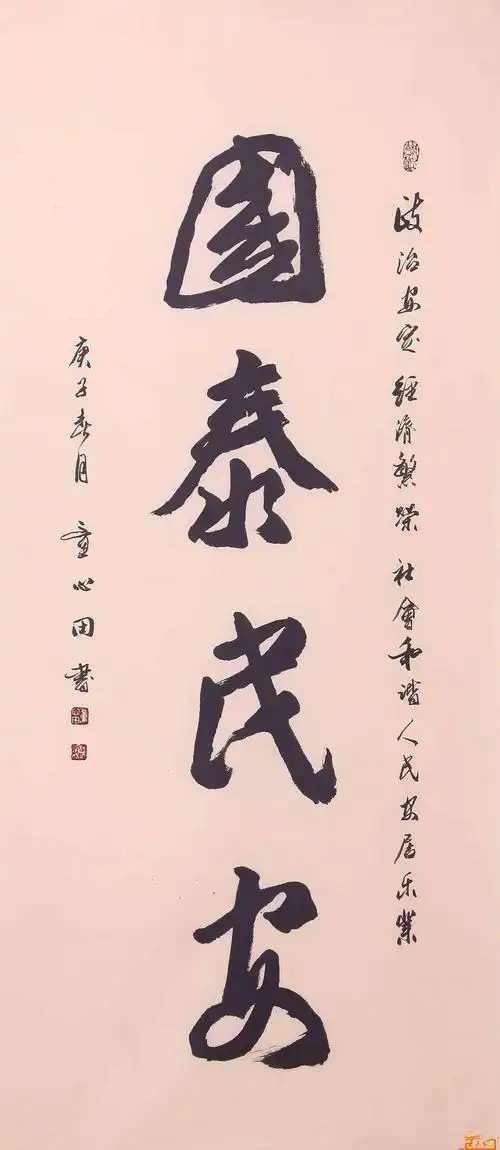 政治安定 經濟繁榮 社會和谐 人民安居乐業
國泰民安
庚子春月 童心田書